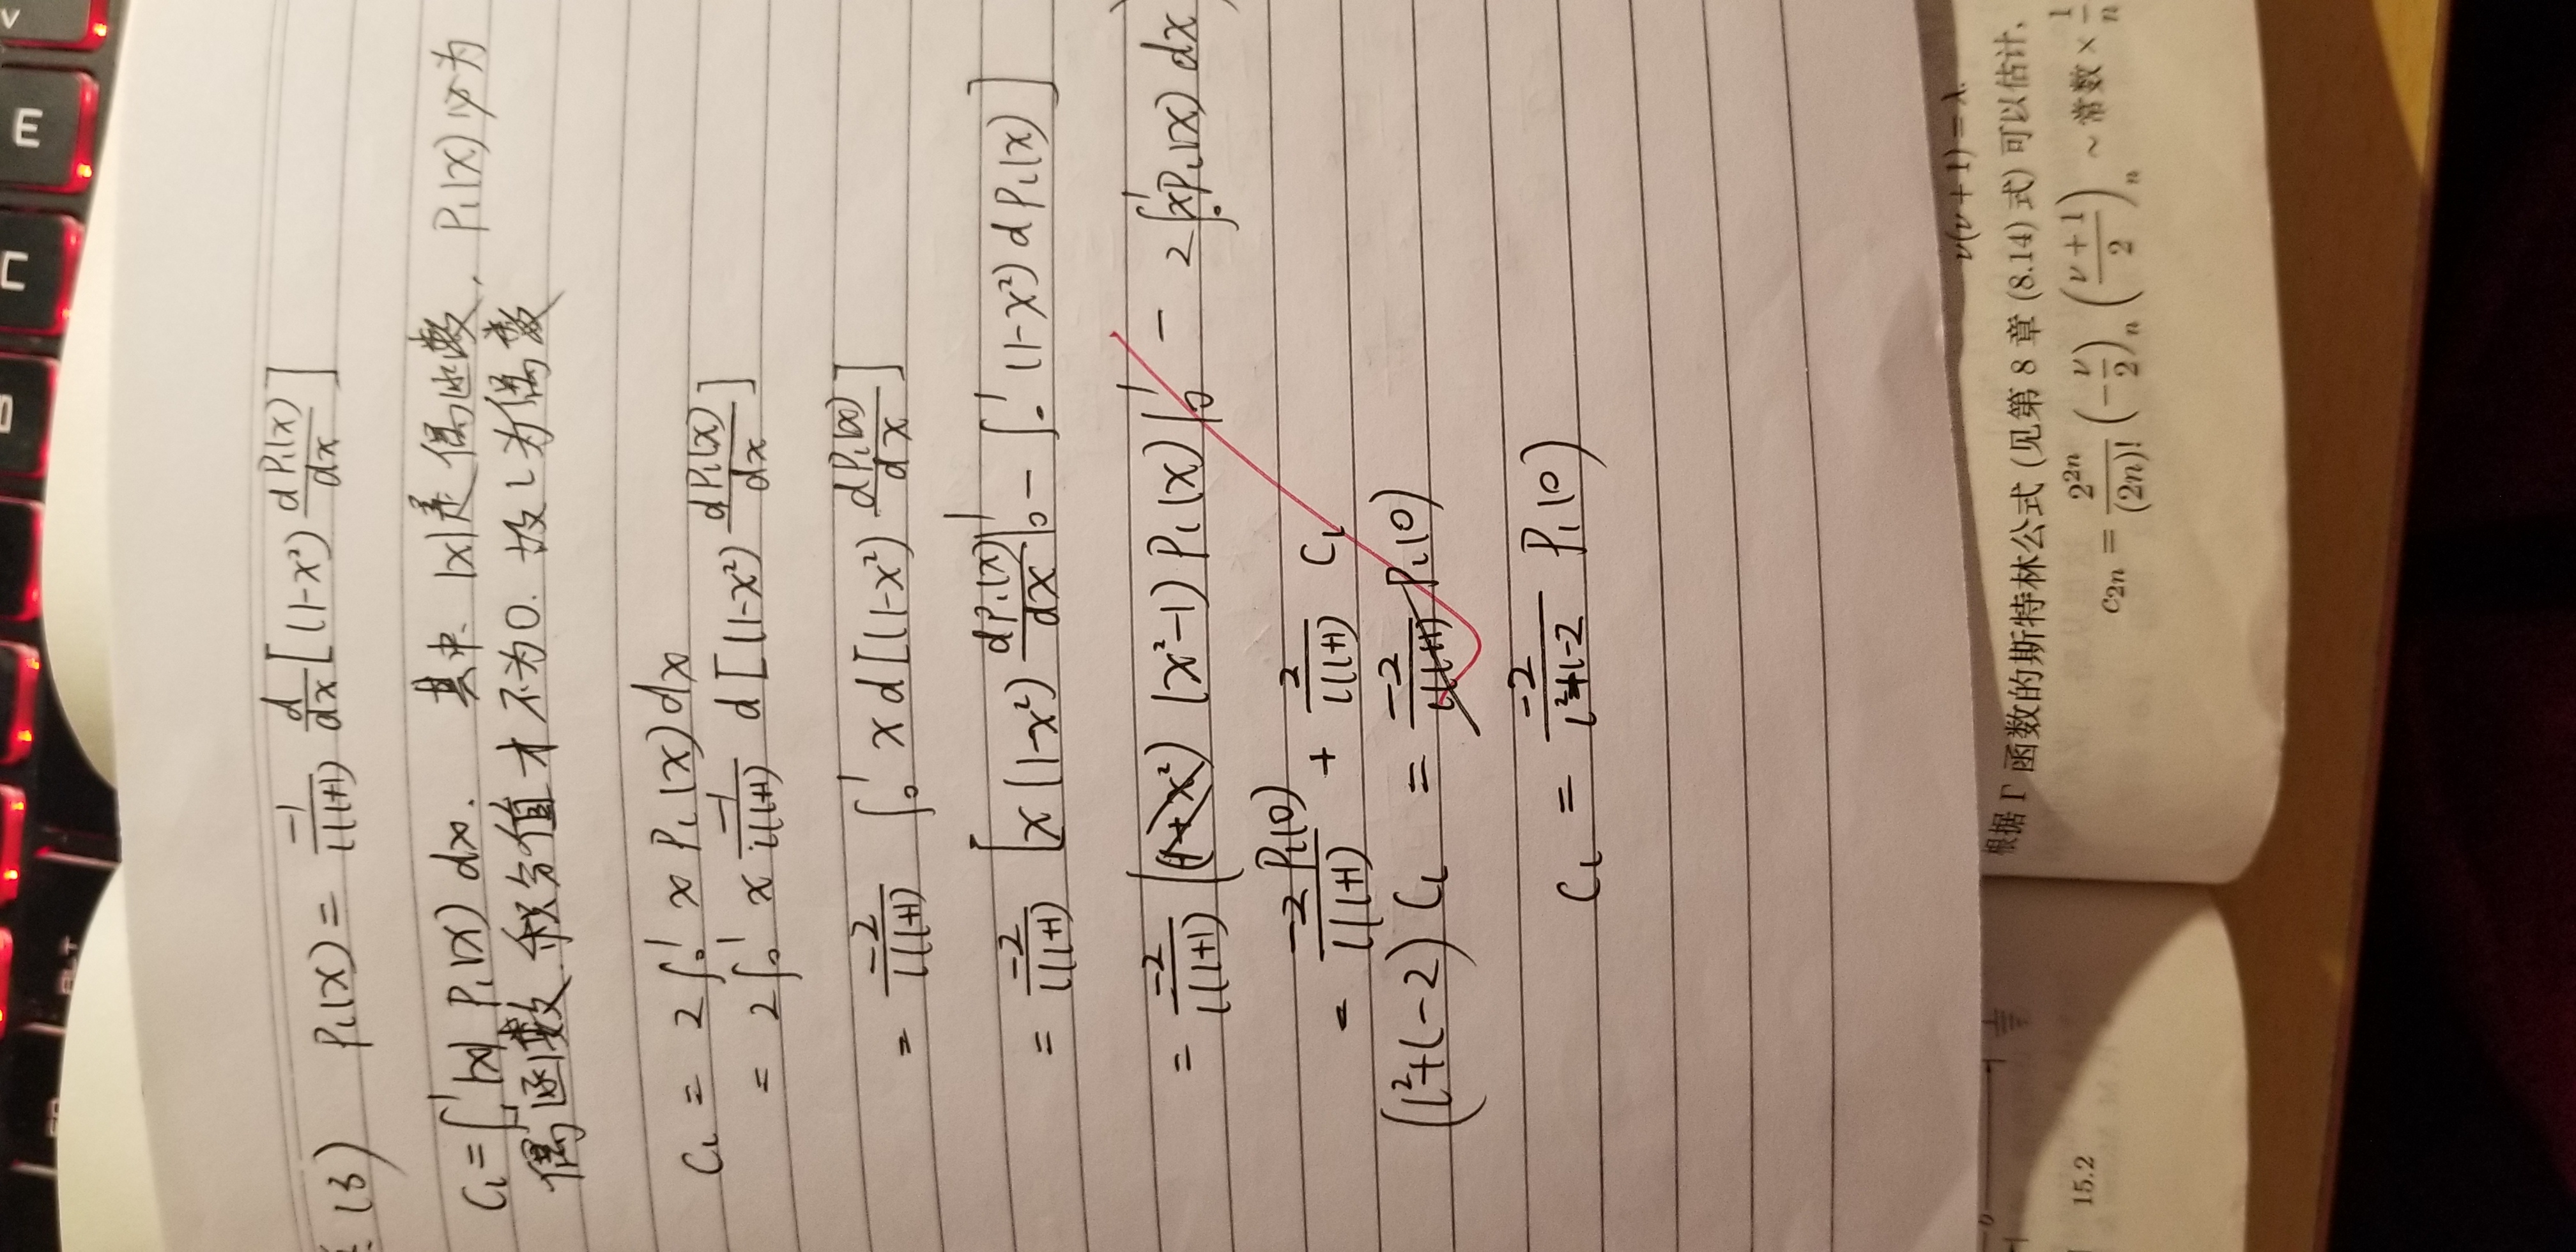 C
E
V
ALT
(3) P_l(x) = \frac{-1}{l(l+1)} \frac{d}{dx} [(1-x²) \frac{dP_l(x)}{dx}]
C_l = ∫_{-1}^{1} |x| P_l(x) dx. 其中 |x| 是偶函数, P_l(x) 必为
偶函数 积分值才不为0. 故 l 为偶数
C_l = 2∫_0^1 x P_l(x) dx
= 2∫_0^1 x \frac{-1}{l(l+1)} d[(1-x²) \frac{dP_l(x)}{dx}]
= \frac{-2}{l(l+1)} ∫_0^1 x d[(1-x²) \frac{dP_l(x)}{dx}]
= \frac{-2}{l(l+1)} [x(1-x²) \frac{dP_l(x)}{dx} |_0^1 - ∫_0^1 (1-x²) dP_l(x)]
= \frac{-2}{l(l+1)} ( (x²-1) P_l(x) |_0^1 - 2∫_0^1 xP_l(x) dx)
= \frac{-2P_l(0)}{l(l+1)} + \frac{2}{l(l+1)} C_l
(l²+l-2) C_l = \frac{-2}{l(l+1)} P_l(0)
C_l = \frac{-2}{l²+l-2} P_l(0)
ν(ν + 1) = λ.
根据 Γ 函数的斯特林公式 (见第 8 章 (8.14) 式) 可以估计,
15.2
c_{2n} = \frac{2^{2n}}{(2n)!} (-\frac{ν}{2})_n (\frac{ν+1}{2})_n ~ 常数 × \frac{1}{n}